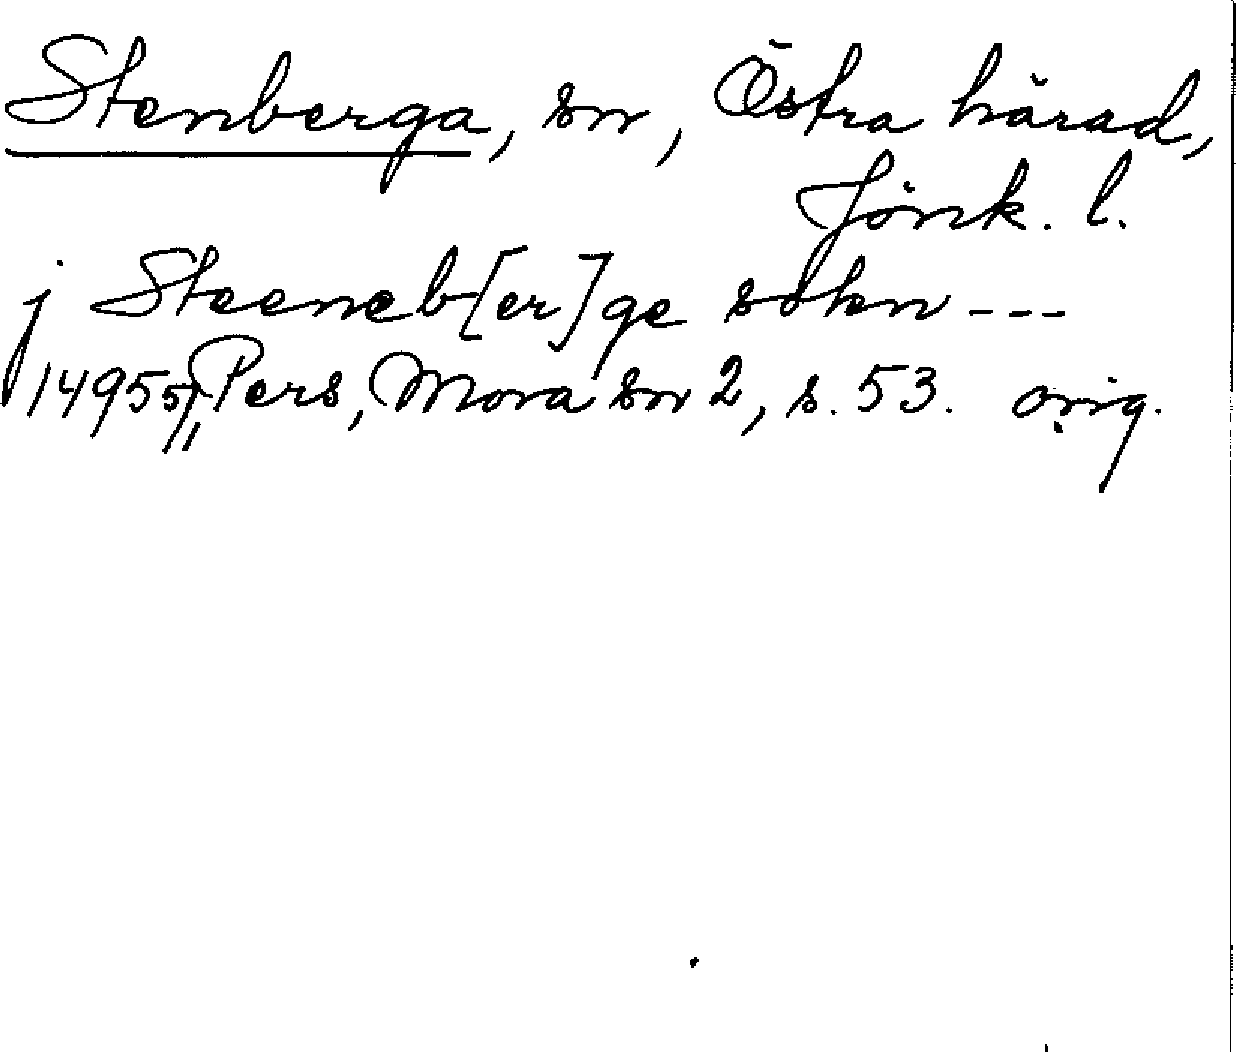 Stenberga, sn, Östra härad,
Jönk. l.
j Steeneb[er]ge sokn ---
1495 5/11 Pers, Mora sn 2, s. 53. orig.